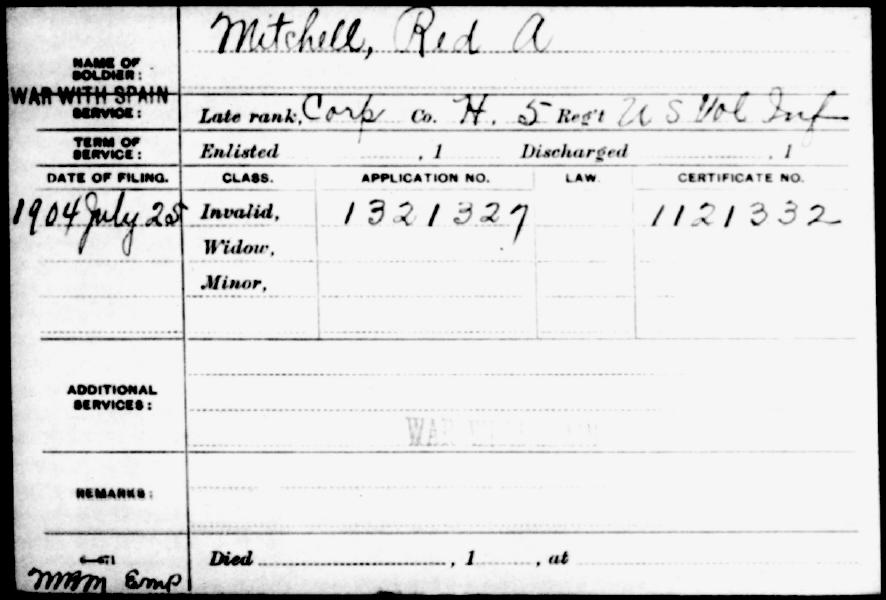 Mitchell, Red A
NAME OF
SOLDIER:
WAR WITH SPAIN
SERVICE:
Late rank, Corp Co. H. 5 Reg't U S Vol Inf
TERM OF
SERVICE:
Enlisted , 1 Discharged , 1
DATE OF FILING. CLASS. APPLICATION NO. LAW. CERTIFICATE NO.
1904 July 25 Invalid, 1321327 1121332
Widow,
Minor,
ADDITIONAL
SERVICES:
WAR WITH SPAIN
REMARKS:
Died , 1 , at
MBM Emp